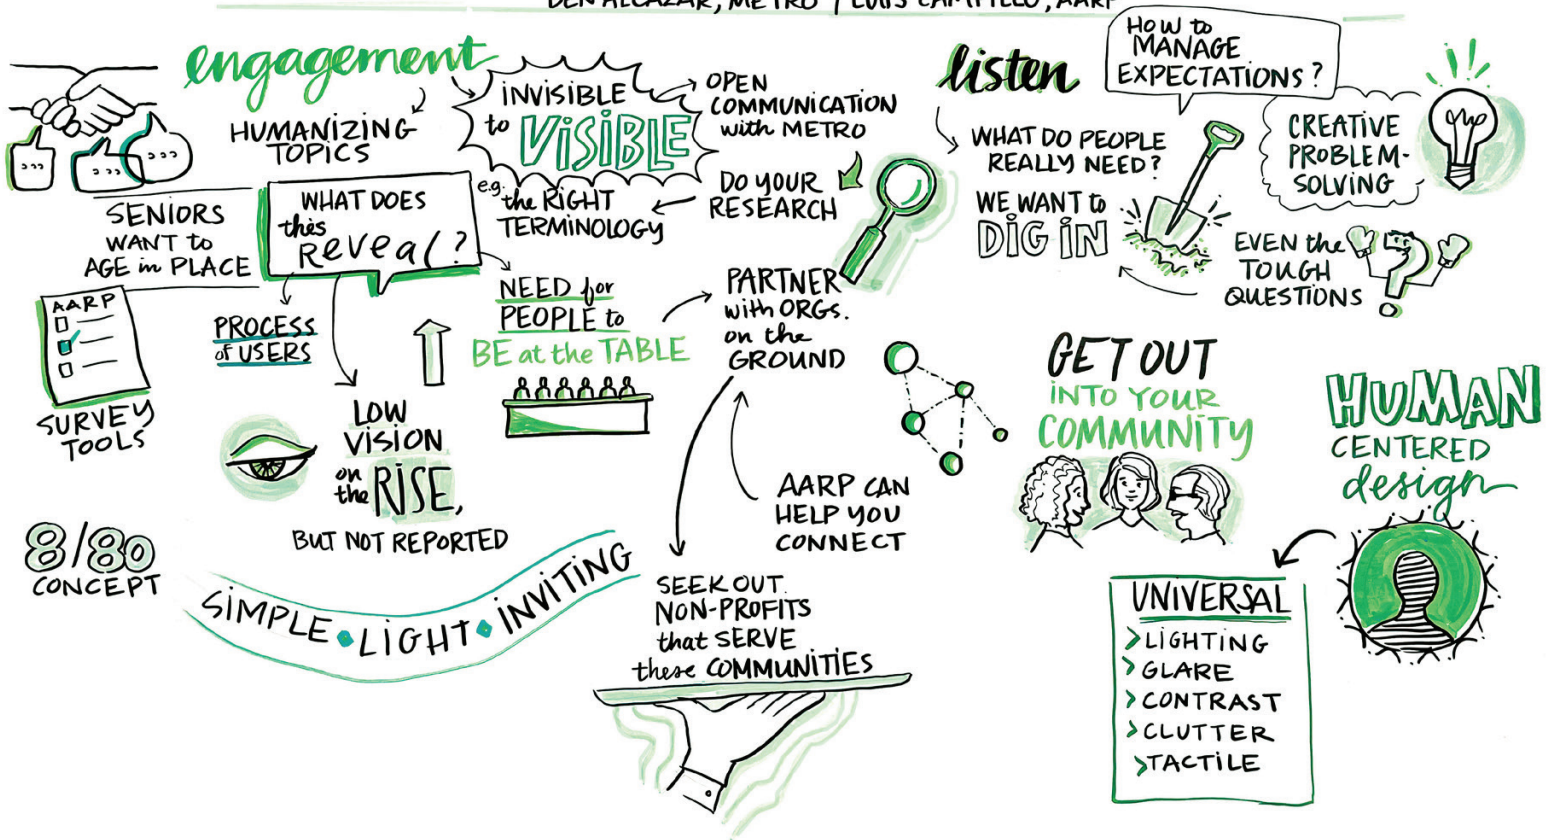 engagement
HUMANIZING
TOPICS
INVISIBLE
to VISIBLE
OPEN
COMMUNICATION
with METRO
DO YOUR
RESEARCH
e.g. the RIGHT
TERMINOLOGY
SENIORS
WANT to
AGE in PLACE
WHAT DOES
this
Reveal?
AARP
SURVEY
TOOLS
PROCESS
of USERS
NEED for
PEOPLE to
BE at the TABLE
PARTNER
with ORGS.
on the
GROUND
LOW
VISION
on
the RISE,
BUT NOT REPORTED
AARP CAN
HELP YOU
CONNECT
8/80
CONCEPT
SIMPLE • LIGHT • INVITING
SEEK OUT
NON-PROFITS
that SERVE
these COMMUNITIES
listen
HOW to
MANAGE
EXPECTATIONS?
WHAT DO PEOPLE
REALLY NEED?
WE WANT to
DIG IN
CREATIVE
PROBLEM-
SOLVING
EVEN the
TOUGH
QUESTIONS
GET OUT
INTO YOUR
COMMUNITY
HUMAN
CENTERED
design
UNIVERSAL
> LIGHTING
> GLARE
> CONTRAST
> CLUTTER
> TACTILE